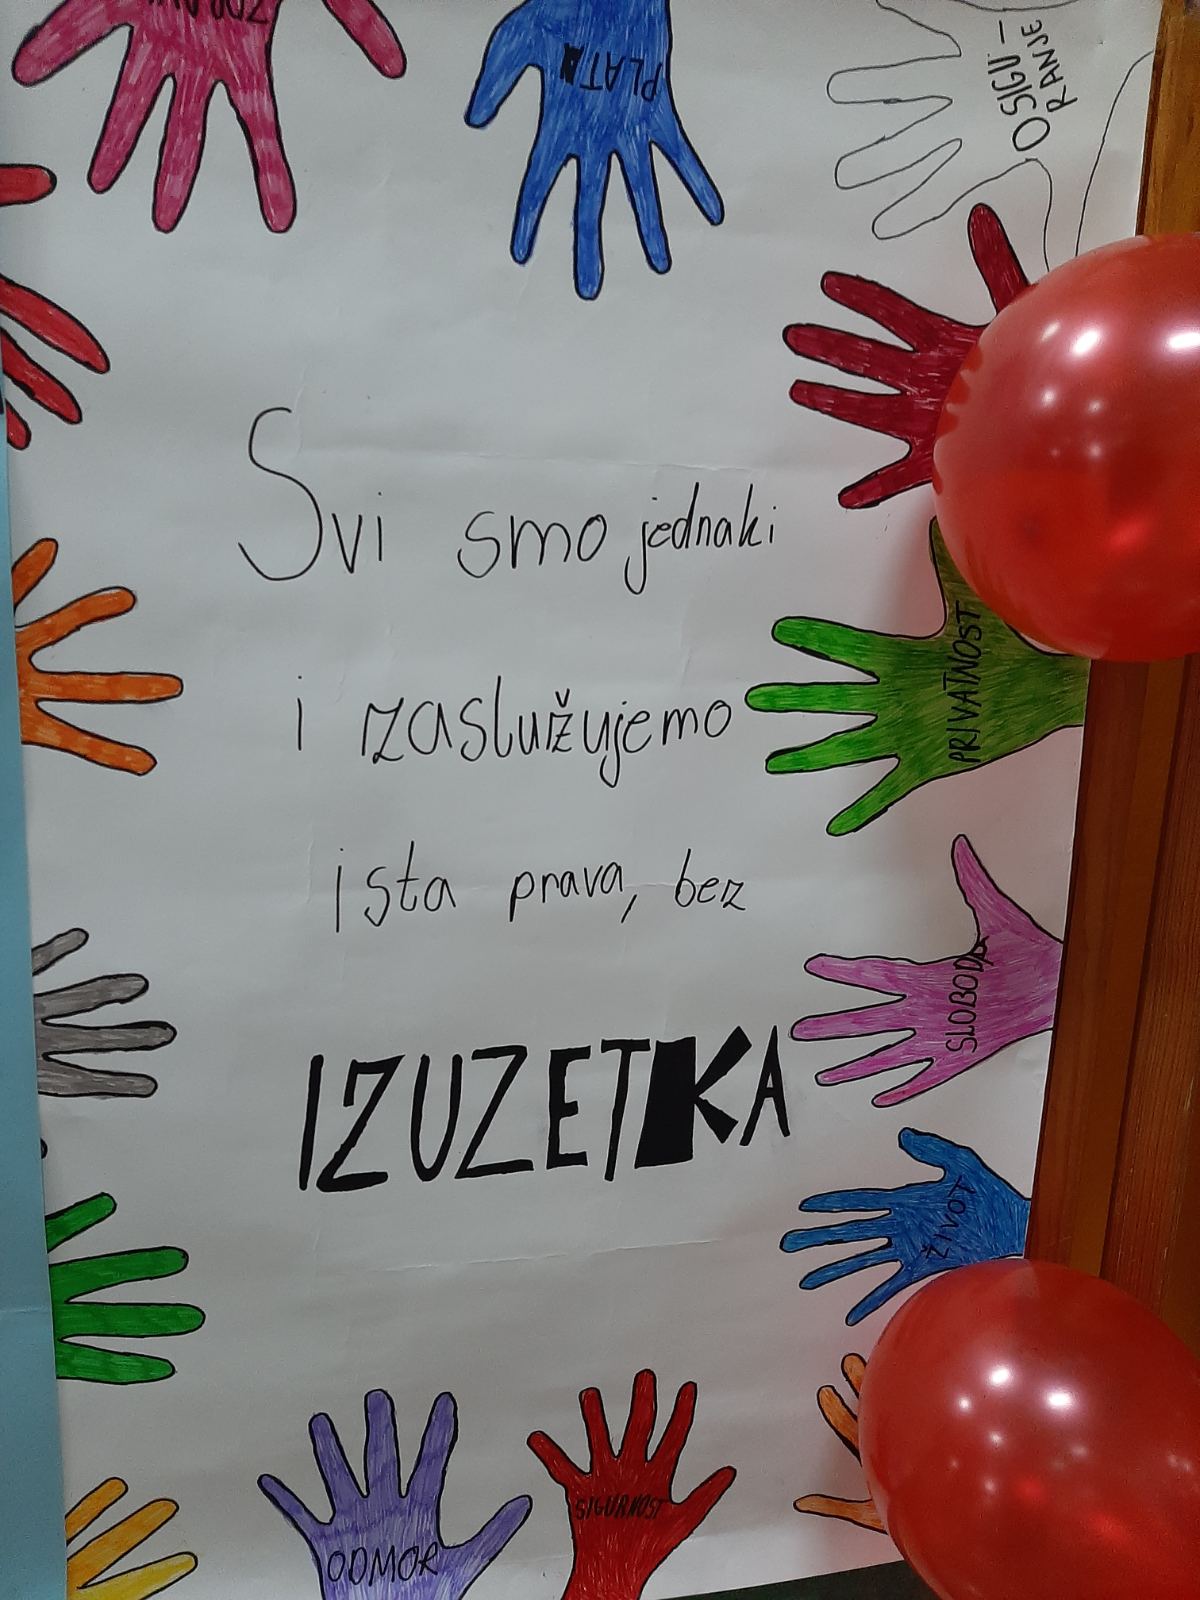 PLATA
OSIGU-
RANJE
Svi smo jednaki
i zaslužujemo
ista prava, bez
IZUZETKA
PRIVATNOST
SLOBODA
ŽIVOT
SIGURNOST
ODMOR